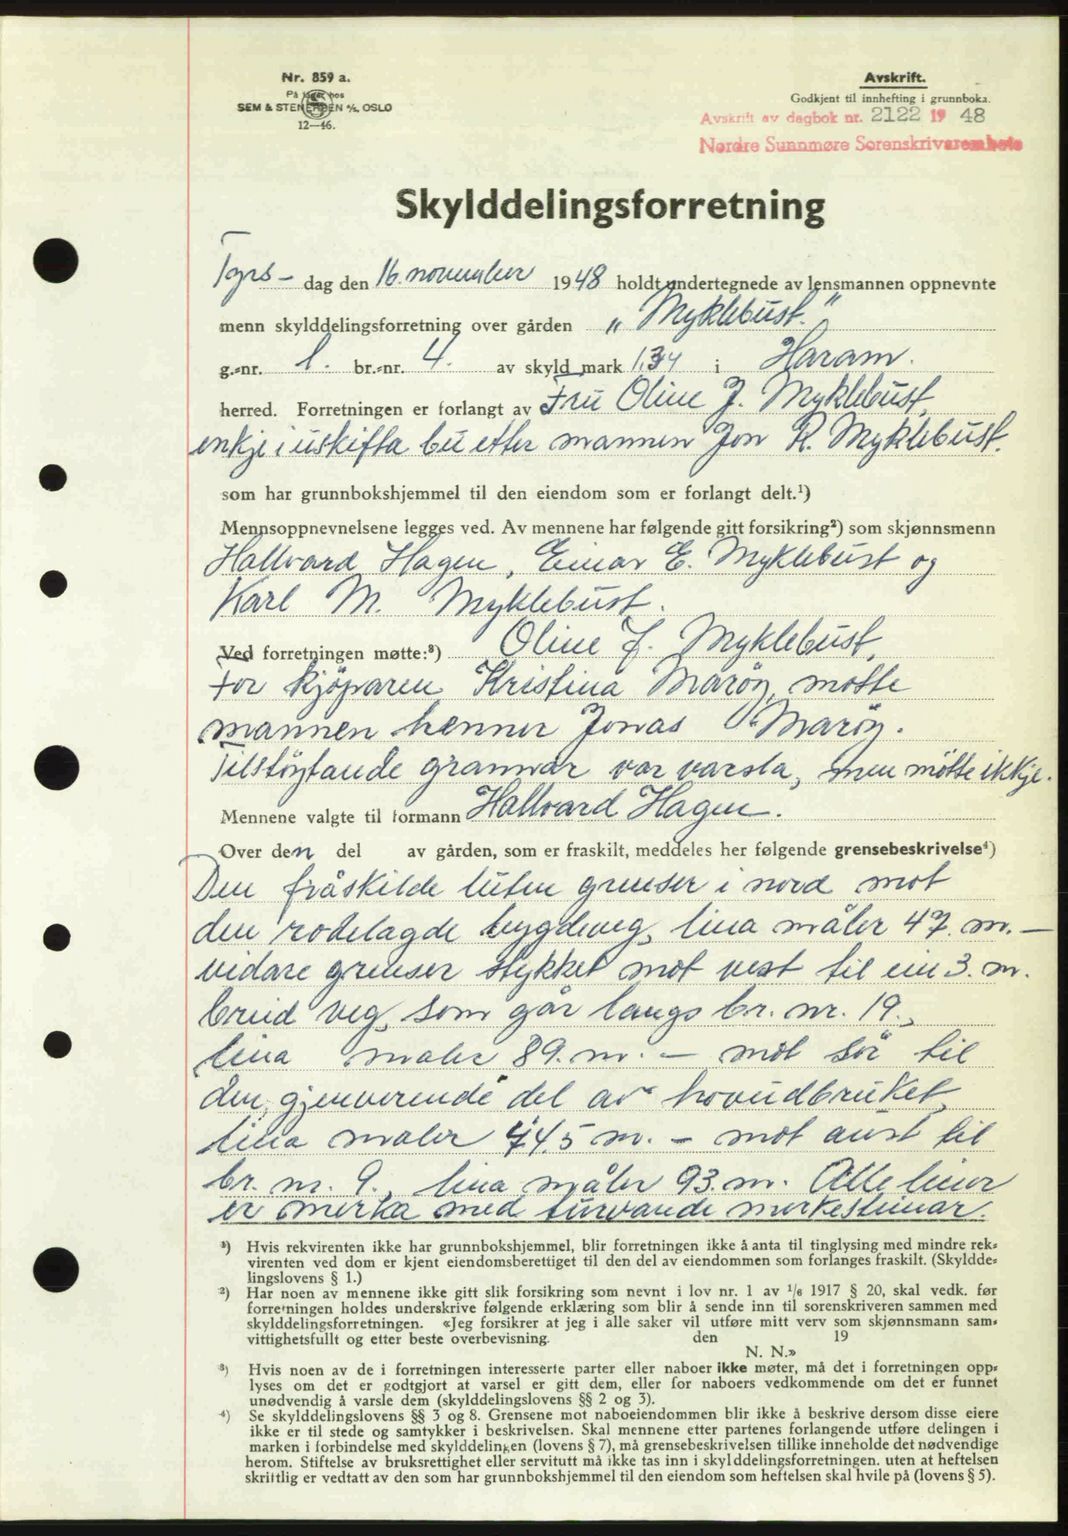 Nr. 859 a.
På lager hos
SEM & STENERSEN A/S, OSLO
12—46.
Avskrift.
Godkjent til innhefting i grunnboka.
Avskrift av dagbok nr. 2122 19 48
Nordre Sunnmøre Sorenskriverembete
Skylddelingsforretning
Tyrs- dag den 16. november 1948 holdt undertegnede av lensmannen oppnevnte
menn skylddelingsforretning over gården „Myklebust."
g.-nr. 1. br.-nr. 4. av skyld mark 1,34 i Haram.
herred. Forretningen er forlangt av Fru Oline J. Myklebust,
enkje i uskifta bu etter mannen Jon R. Myklebust.
som har grunnbokshjemmel til den eiendom som er forlangt delt.¹)
Mennsoppnevnelsene legges ved. Av mennene har følgende gitt forsikring²) som skjønnsmenn
Hallvard Hagen, Einar E. Myklebust og
Karl M. Myklebust.
Ved forretningen møtte:³) Oline J. Myklebust,
For kjöparen Kristina Maröy, møtte
mannen hennar Jonas Maröy.
Tilstöytande grannar var varsla, men mötte ikkje.
Mennene valgte til formann Hallvard Hagen.
Over den del av gården, som er fraskilt, meddeles her følgende grensebeskrivelse⁴)
Den fråskilde luten grenser i nord mot
den rodelagde bygdeveg, lina måler 47. m. —
vidare grenser stykket mot vest til ein 3. m.
breid veg, som går langs br. nr. 19.,
lina maler 89. m. — mot sör til
den gjenverende del av hovudbruket,
lina maler 74.5 m. — mot aust til
br. nr. 9., lina måler 93. m. Alle linor
er merka med turvande merkesteinar.
¹) Hvis rekvirenten ikke har grunnbokshjemmel, blir forretningen ikke å anta til tinglysing med mindre rek-
virenten ved dom er kjent eiendomsberettiget til den del av eiendommen som forlanges fraskilt. (Skyldde-
lingslovens § 1.)
²) Har noen av mennene ikke gitt slik forsikring som nevnt i lov nr. 1 av 1/6 1917 § 20, skal vedk. før
forretningen holdes underskrive følgende erklæring som blir å sende inn til sorenskriveren sammen med
skylddelingsforretningen. «Jeg forsikrer at jeg i alle saker vil utføre mitt verv som skjønnsmann sam-
vittighetsfullt og etter beste overbevisning. den 19
N. N.»
³) Hvis noen av de i forretningen interesserte parter eller naboer ikke møter, må det i forretningen opp-
lyses om det er godtgjort at varsel er gitt dem, eller for naboers vedkommende om det er funnet
unødvendig å varsle dem (skylddelingslovens §§ 2 og 3).
⁴) Se skylddelingslovens §§ 3 og 8. Grensene mot naboeiendommen blir ikke å beskrive dersom disse eiere
ikke er til stede og samtykker i beskrivelsen. Skal mennene etter partenes forlangende utføre delingen i
marken i forbindelse med skylddelingen (lovens § 7), må grensebeskrivelsen tillike inneholde det nødvendige
herom. Stiftelse av bruksrettighet eller servitutt må ikke tas inn i skylddelingsforretningen, uten at heftelsen
skriftlig er vedtatt av den som har grunnbokshjemmel til den eiendom som heftelsen skal hvile på (lovens § 5).